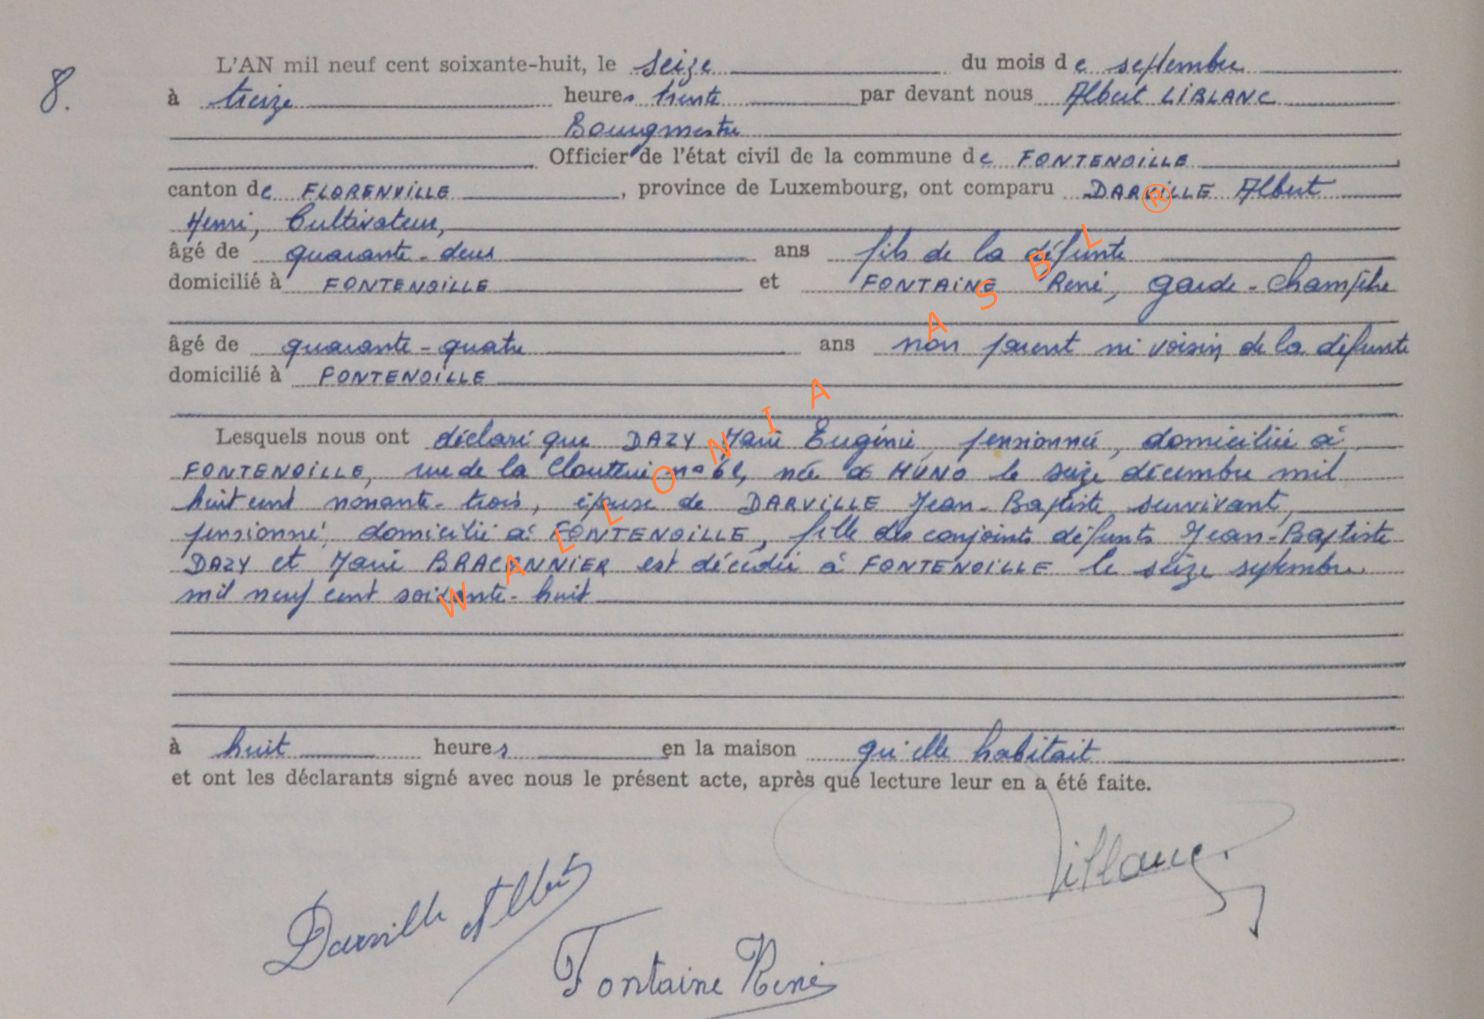 8.
L'AN mil neuf cent soixante-huit, le seize du mois de septembre
à treize heures trente par devant nous Albert LIBLANC
Bourgmestre
Officier de l'état civil de la commune de FONTENOILLE
canton de FLORENVILLE, province de Luxembourg, ont comparu DARVILLE Albert
Henri, Cultivateur,
âgé de quarante-deux ans fils de la défunte
domicilié à FONTENOILLE et FONTAINE René, garde-champêtre
âgé de quarante-quatre ans non parent ni voisin de la défunte
domicilié à FONTENOILLE
Lesquels nous ont déclaré que DAZY Marie Eugénie, pensionnée, domiciliée à
FONTENOILLE, rue de la Clouterie n° 61, née à MUNO le seize décembre mil
huit cent nonante-trois, épouse de DARVILLE Jean-Baptiste, survivant,
pensionné, domicilié à FONTENOILLE, fille des conjoints défunts Jean-Baptiste
DAZY et Marie BRACONNIER est décédée à FONTENOILLE le seize septembre
mil neuf cent soixante-huit
à huit heures en la maison qu'elle habitait
et ont les déclarants signé avec nous le présent acte, après que lecture leur en a été faite.
Darville Albert
Fontaine René
WALLONIA ASBL ®